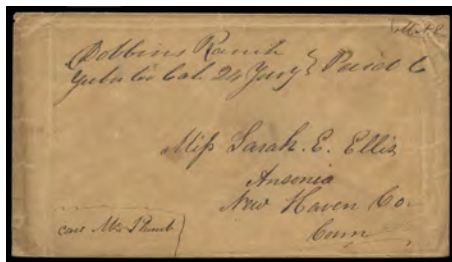 Dobbins Ranch
Yuba Co Cal. 24 Jany } Paid 6
Miss Sarah. E. Ellis
Ansonia
New Haven Co.
Conn
care Mr Plumb